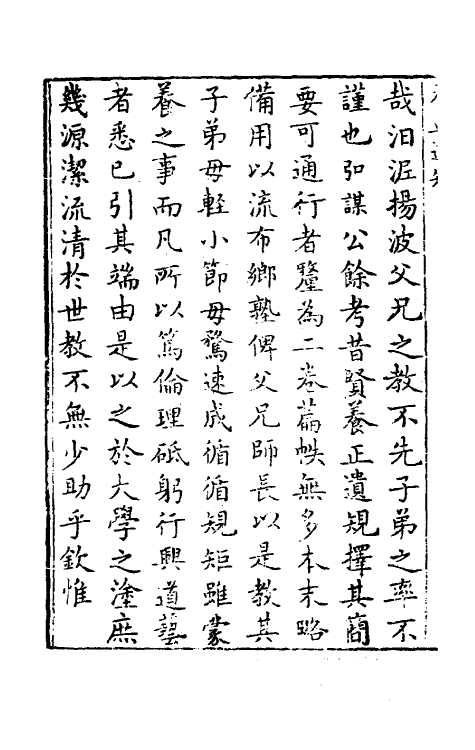 哉汨泥揚波父兄之教不先子弟之率不
謹也弘謀公餘考昔賢養正遺規擇其簡
要可通行者釐為二卷萹帙無多本末略
備用以流布鄉塾俾父兄師長以是教其
子弟毋輕小節毋騖速成循循規矩雖蒙
養之事而凡所以篤倫理砥躬行興道藝
者悉已引其端由是以之於大學之塗庶
幾源潔流清於世教不無少助乎欽惟